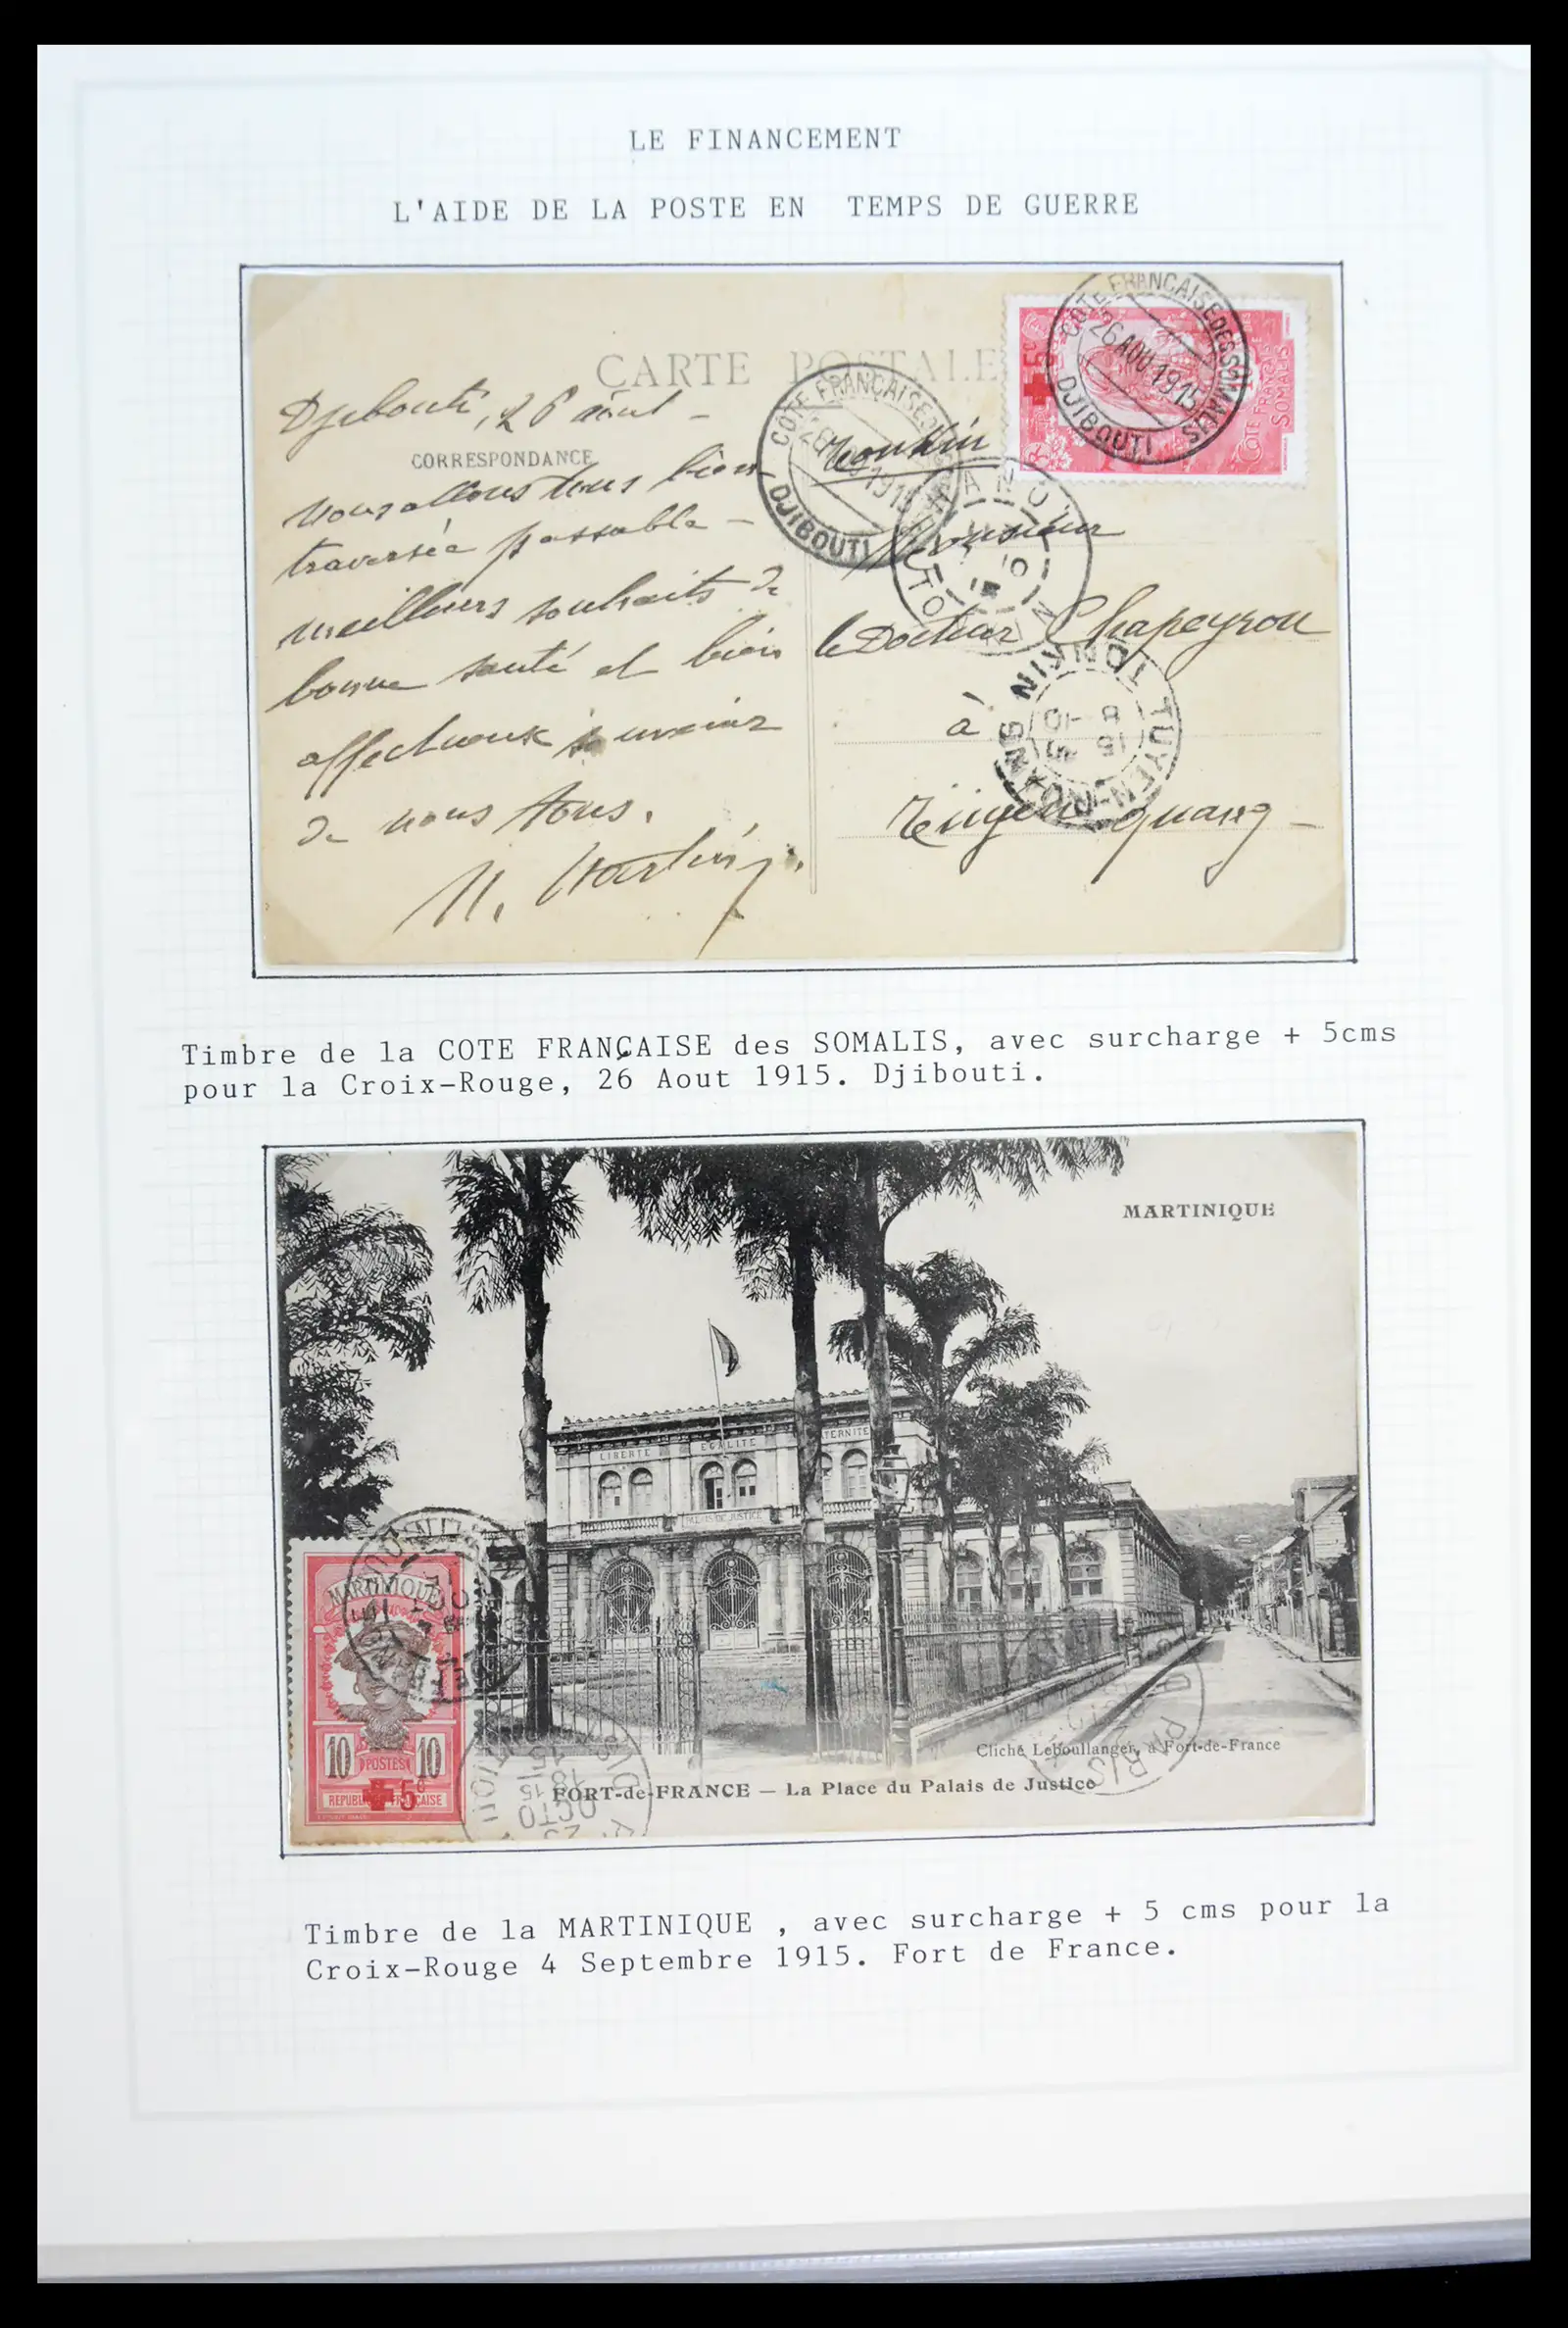 LE FINANCEMENT
L'AIDE DE LA POSTE EN TEMPS DE GUERRE
CARTE POSTALE
CORRESPONDANCE
Djibouti, 26 aout -
nous allons tous bien
traversée passable -
meilleurs souhaits de
bonne santé et bien
affectueux souvenir
de nous tous.
+ 5c
COTE FRANÇAISE DES SOMALIS
26 AOU 1915
DJIBOUTI
COTE FRANÇAISE
SOMALIS
COTE FRANÇAISE
1915
DJIBOUTI
Tonkin
Monsieur
le Docteur Chapeyrou
à
Tuyen-quang -
HANOI
TONKIN
TUYEN-QUANG
TONKIN
Timbre de la COTE FRANÇAISE des SOMALIS, avec surcharge + 5cms
pour la Croix-Rouge, 26 Aout 1915. Djibouti.
MARTINIQUE
LIBERTE EGALITE
PALAIS DE JUSTICE
MARTINIQUE
10 POSTES 10
REPUBLIQUE FRANÇAISE
+ 5c
Cliché Leboullanger, à Fort-de-France
FORT-de-FRANCE — La Place du Palais de Justice
Timbre de la MARTINIQUE , avec surcharge + 5 cms pour la
Croix-Rouge 4 Septembre 1915. Fort de France.